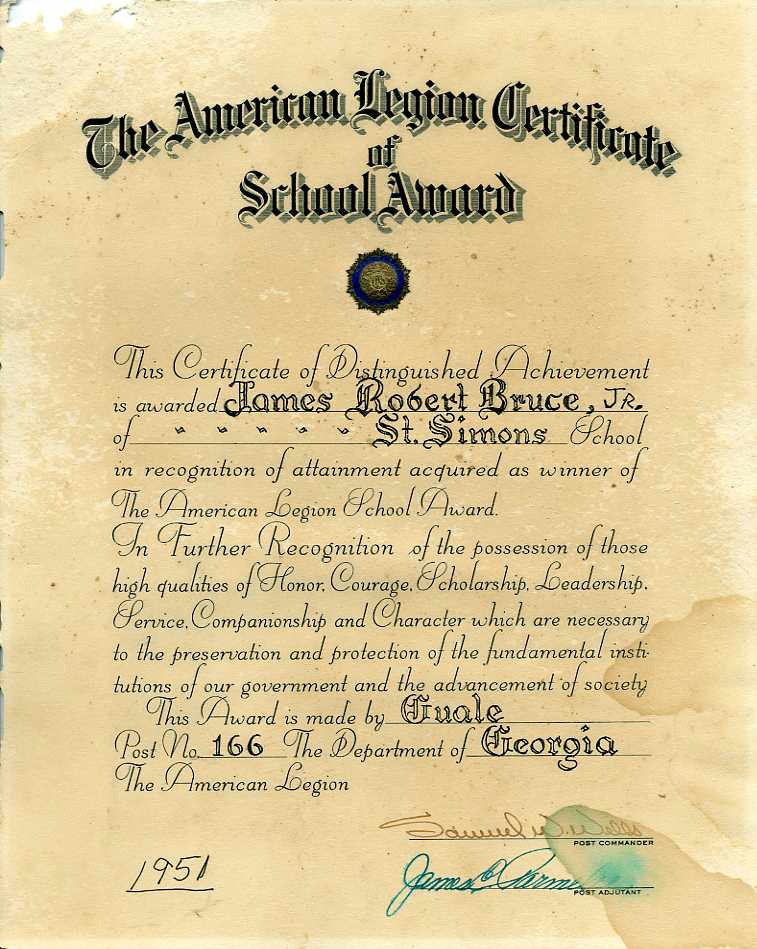 The American Legion Certificate
of
School Award
This Certificate of Distinguished Achievement
is awarded James Robert Bruce, Jr.
of " " " " " St. Simons School
in recognition of attainment acquired as winner of
The American Legion School Award.
In Further Recognition of the possession of those
high qualities of Honor, Courage, Scholarship, Leadership,
Service, Companionship and Character which are necessary
to the preservation and protection of the fundamental insti-
tutions of our government and the advancement of society
This Award is made by Guale
Post No. 166 The Department of Georgia
The American Legion
Samuel W. Wells
POST COMMANDER
1951
James
POST ADJUTANT